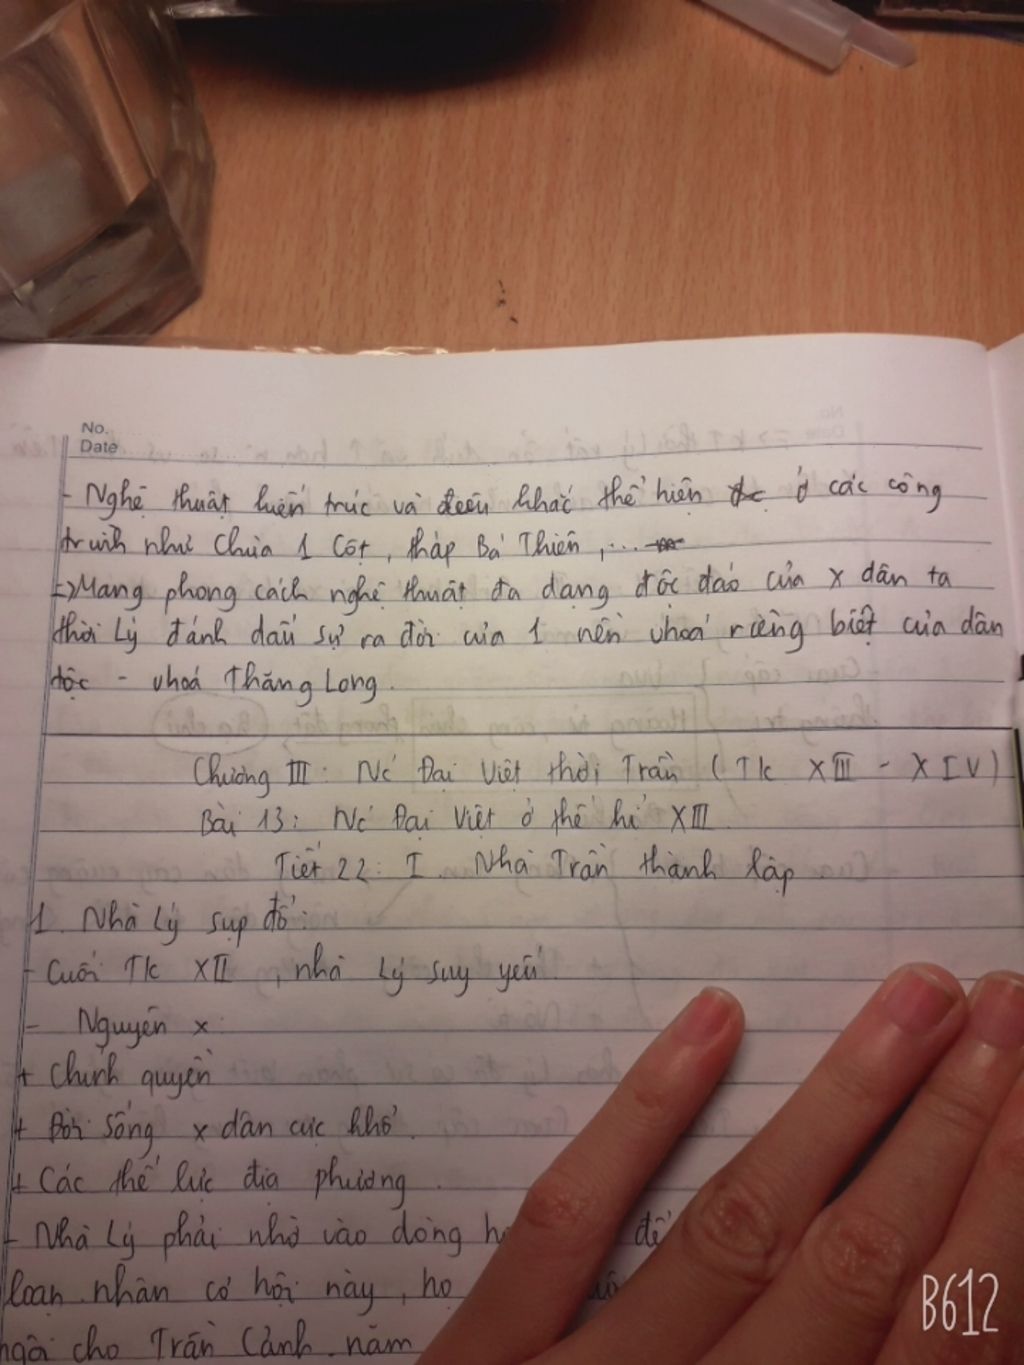 No.
Date
- Nghệ thuật kiến trúc và điêu khắc thể hiện ở các công
trình như Chùa 1 Cột, tháp Bá Thiên, ...
=> Mang phong cách nghệ thuật đa dạng độc đáo của x dân ta
thời Lý đánh dấu sự ra đời của 1 nền vhoá riêng biệt của dân
tộc - vhoá Thăng Long.
Chương III: Nc Đại Việt thời Trần (Tk XIII - XIV)
Bài 13: Nc Đại Việt ở thế kỉ XIII
Tiết 22: I. Nhà Trần thành lập
1. Nhà Lý sụp đổ:
- Cuối Tk XII, nhà Lý suy yếu.
- Nguyên x:
+ Chính quyền
+ Đời sống x dân cực khổ.
+ Các thế lực địa phương.
- Nhà Lý phải nhờ vào dòng để
loạn nhân cơ hội này, họ
ngôi cho Trần Cảnh năm
B612